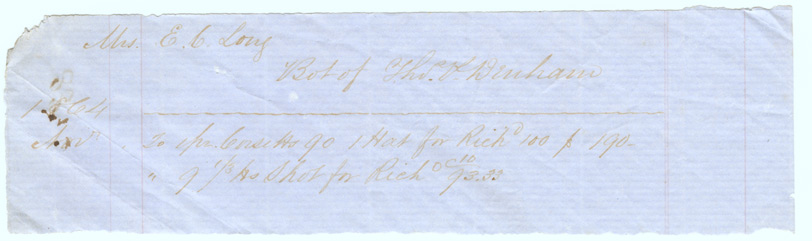 Mrs. E. C. Long
Bot of Thos. F. Denham
1864
Novr. To 1 pr. Corsetts 90 1 Hat for Richd 100 $ 190-
" 9 1/3 lbs Shot for Richd @ 10 93.33